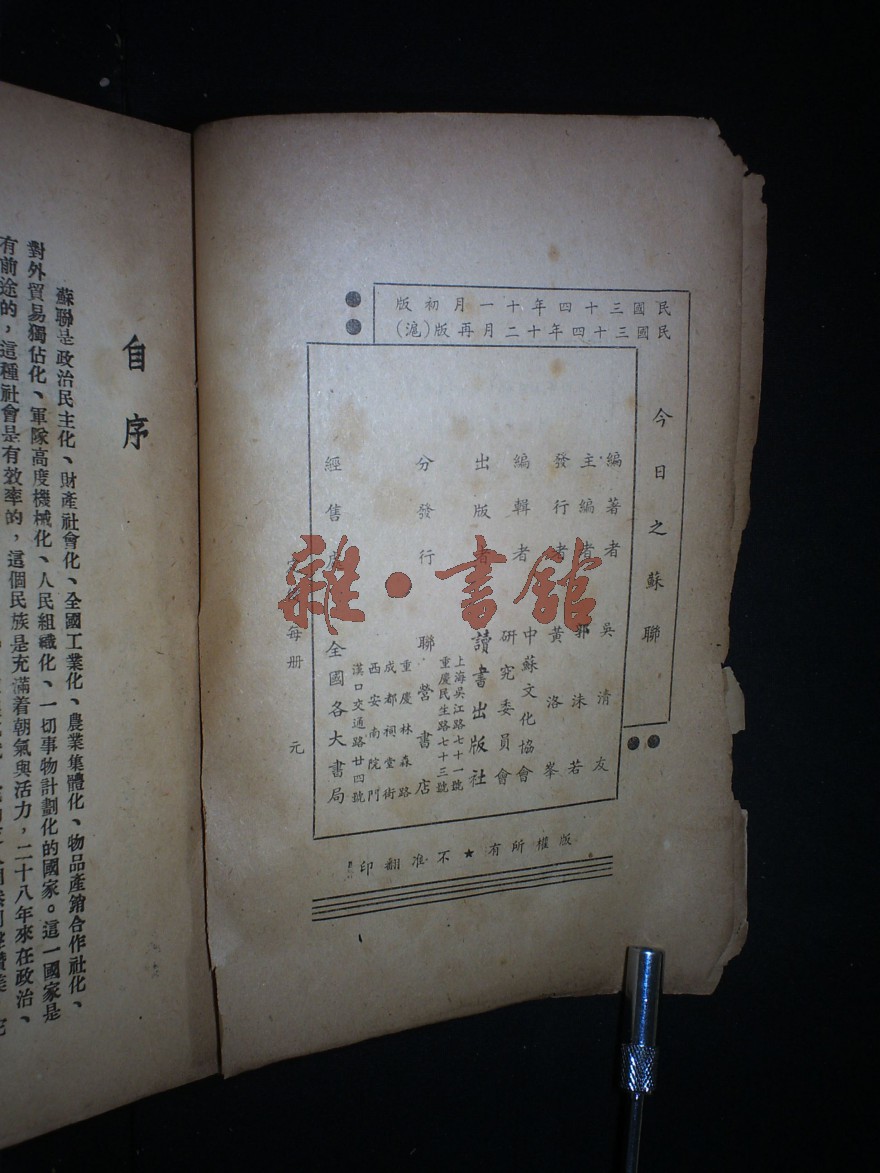 民國三十四年十一月初版
民國三十四年十二月再版(滬)
今日之蘇聯
編著者 吳清友
主編者 郭沫若
發行者 黃洛峯
編輯者 中蘇文化協會
研究委員會
出版者 讀書出版社
上海吳江路七十一號
重慶民生路七十三號
分發行 聯營書店
重慶林森路
成都祠堂街
西安南院門
漢口交通路廿四號
經售處 全國各大書局
每册 元
版權所有★不准翻印
雜·書館
自序
蘇聯是政治民主化、財產社會化、全國工業化、農業集體化、物品產銷合作社化、
對外貿易獨佔化、軍隊高度機械化、人民組織化、一切事物計劃化的國家。這一國家是
有前途的,這種社會是有效率的,這個民族是充滿着朝氣與活力,二十八年來在政治、